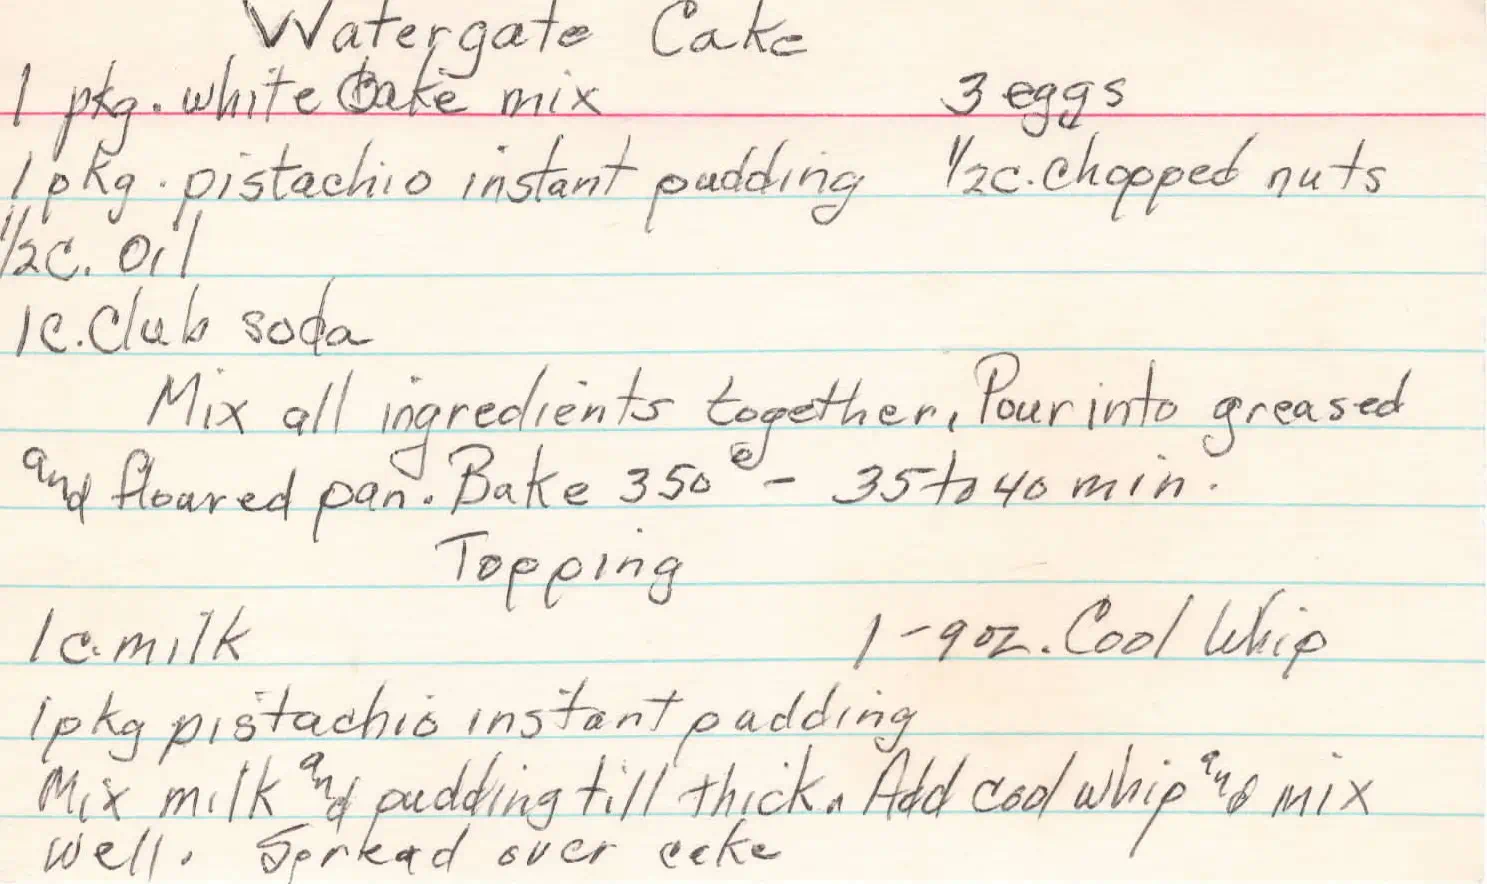 Watergate Cake
1 pkg. white cake mix 3 eggs
1 pkg. pistachio instant pudding 1/2c. chopped nuts
1/2c. Oil
1c. Club soda
Mix all ingredients together, Pour into greased
and floured pan. Bake 350° - 35 to 40 min.
Topping
1c. milk 1-9oz. Cool Whip
1pkg pistachio instant pudding
Mix milk and pudding till thick. Add cool whip and mix
well. Spread over cake